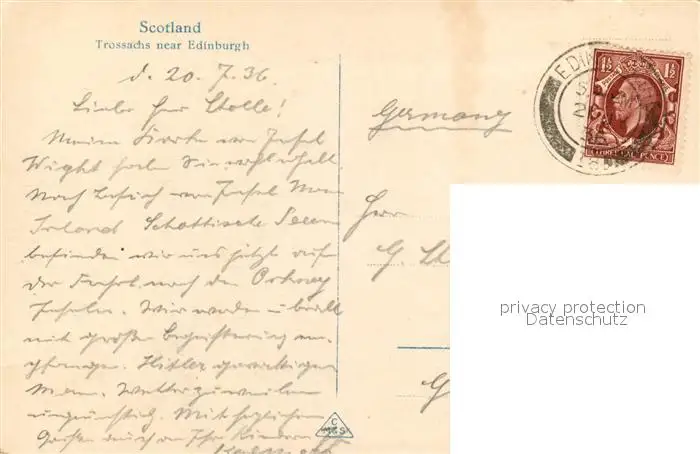 Scotland
Trossachs near Edinburgh
d. 20. 7. 36
Lieber Herr Stolle!
Meine Karte von Insel
Wight haben Sie wohl erhalten
Nach Besuch von Insel Man
Irland Schottische Seen
befinden wir uns jetzt auf
der Fahrt nach den Orkney
Inseln. Wir werden überall
mit großer Begeisterung em-
pfangen. Hitler
Mann. Wetter zuweilen
ungünstig. Mit herzlichen
Grüßen auch an Ihre Kinder
Germany
Herr
G. St
G
EDIN
1½ 1½
THREE HALF PENCE
privacy protection
Datenschutz